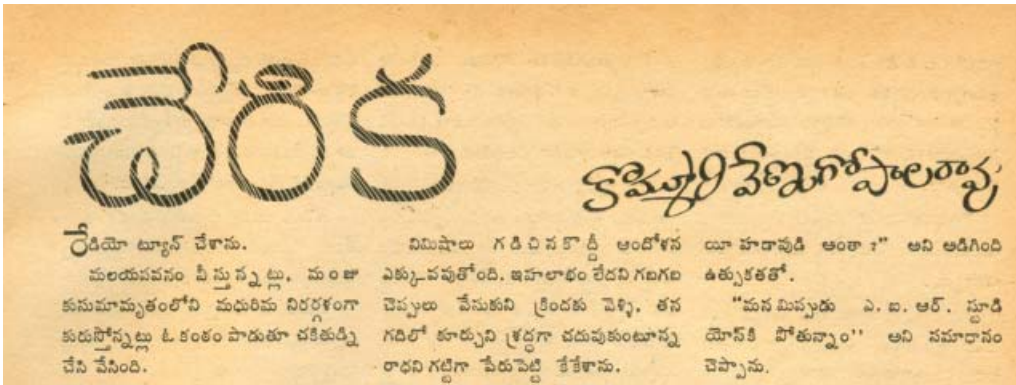 చేరిక
కొమ్మూరి వేణుగోపాలరావు
రేడియో ట్యూన్ చేశాను.
మలయపవనం వీస్తున్నట్లు, మంజు
కుసుమామృతంలోని మధురిమ నిరర్గళంగా
కురుస్తోన్నట్లు ఓ కంఠం పాడుతూ చకితుడ్ని
చేసి వేసింది.
నిమిషాలు గడిచినకొద్దీ ఆందోళన
ఎక్కువవుతోంది. ఇహలాభం లేదని గబగబ
చెప్పులు వేసుకుని క్రిందకు వెళ్ళి, తన
గదిలో కూర్చుని శ్రద్ధగా చదువుకుంటూన్న
రాధని గట్టిగా పేరుపెట్టి కేకేశాను.
యీ హడావుడి అంతా ?" అని అడిగింది
ఉత్సుకతతో.
"మన మిప్పుడు ఎ. ఐ. ఆర్. స్టూడి
యోస్‌కి పోతున్నాం" అని సమాధానం
చెప్పాను.